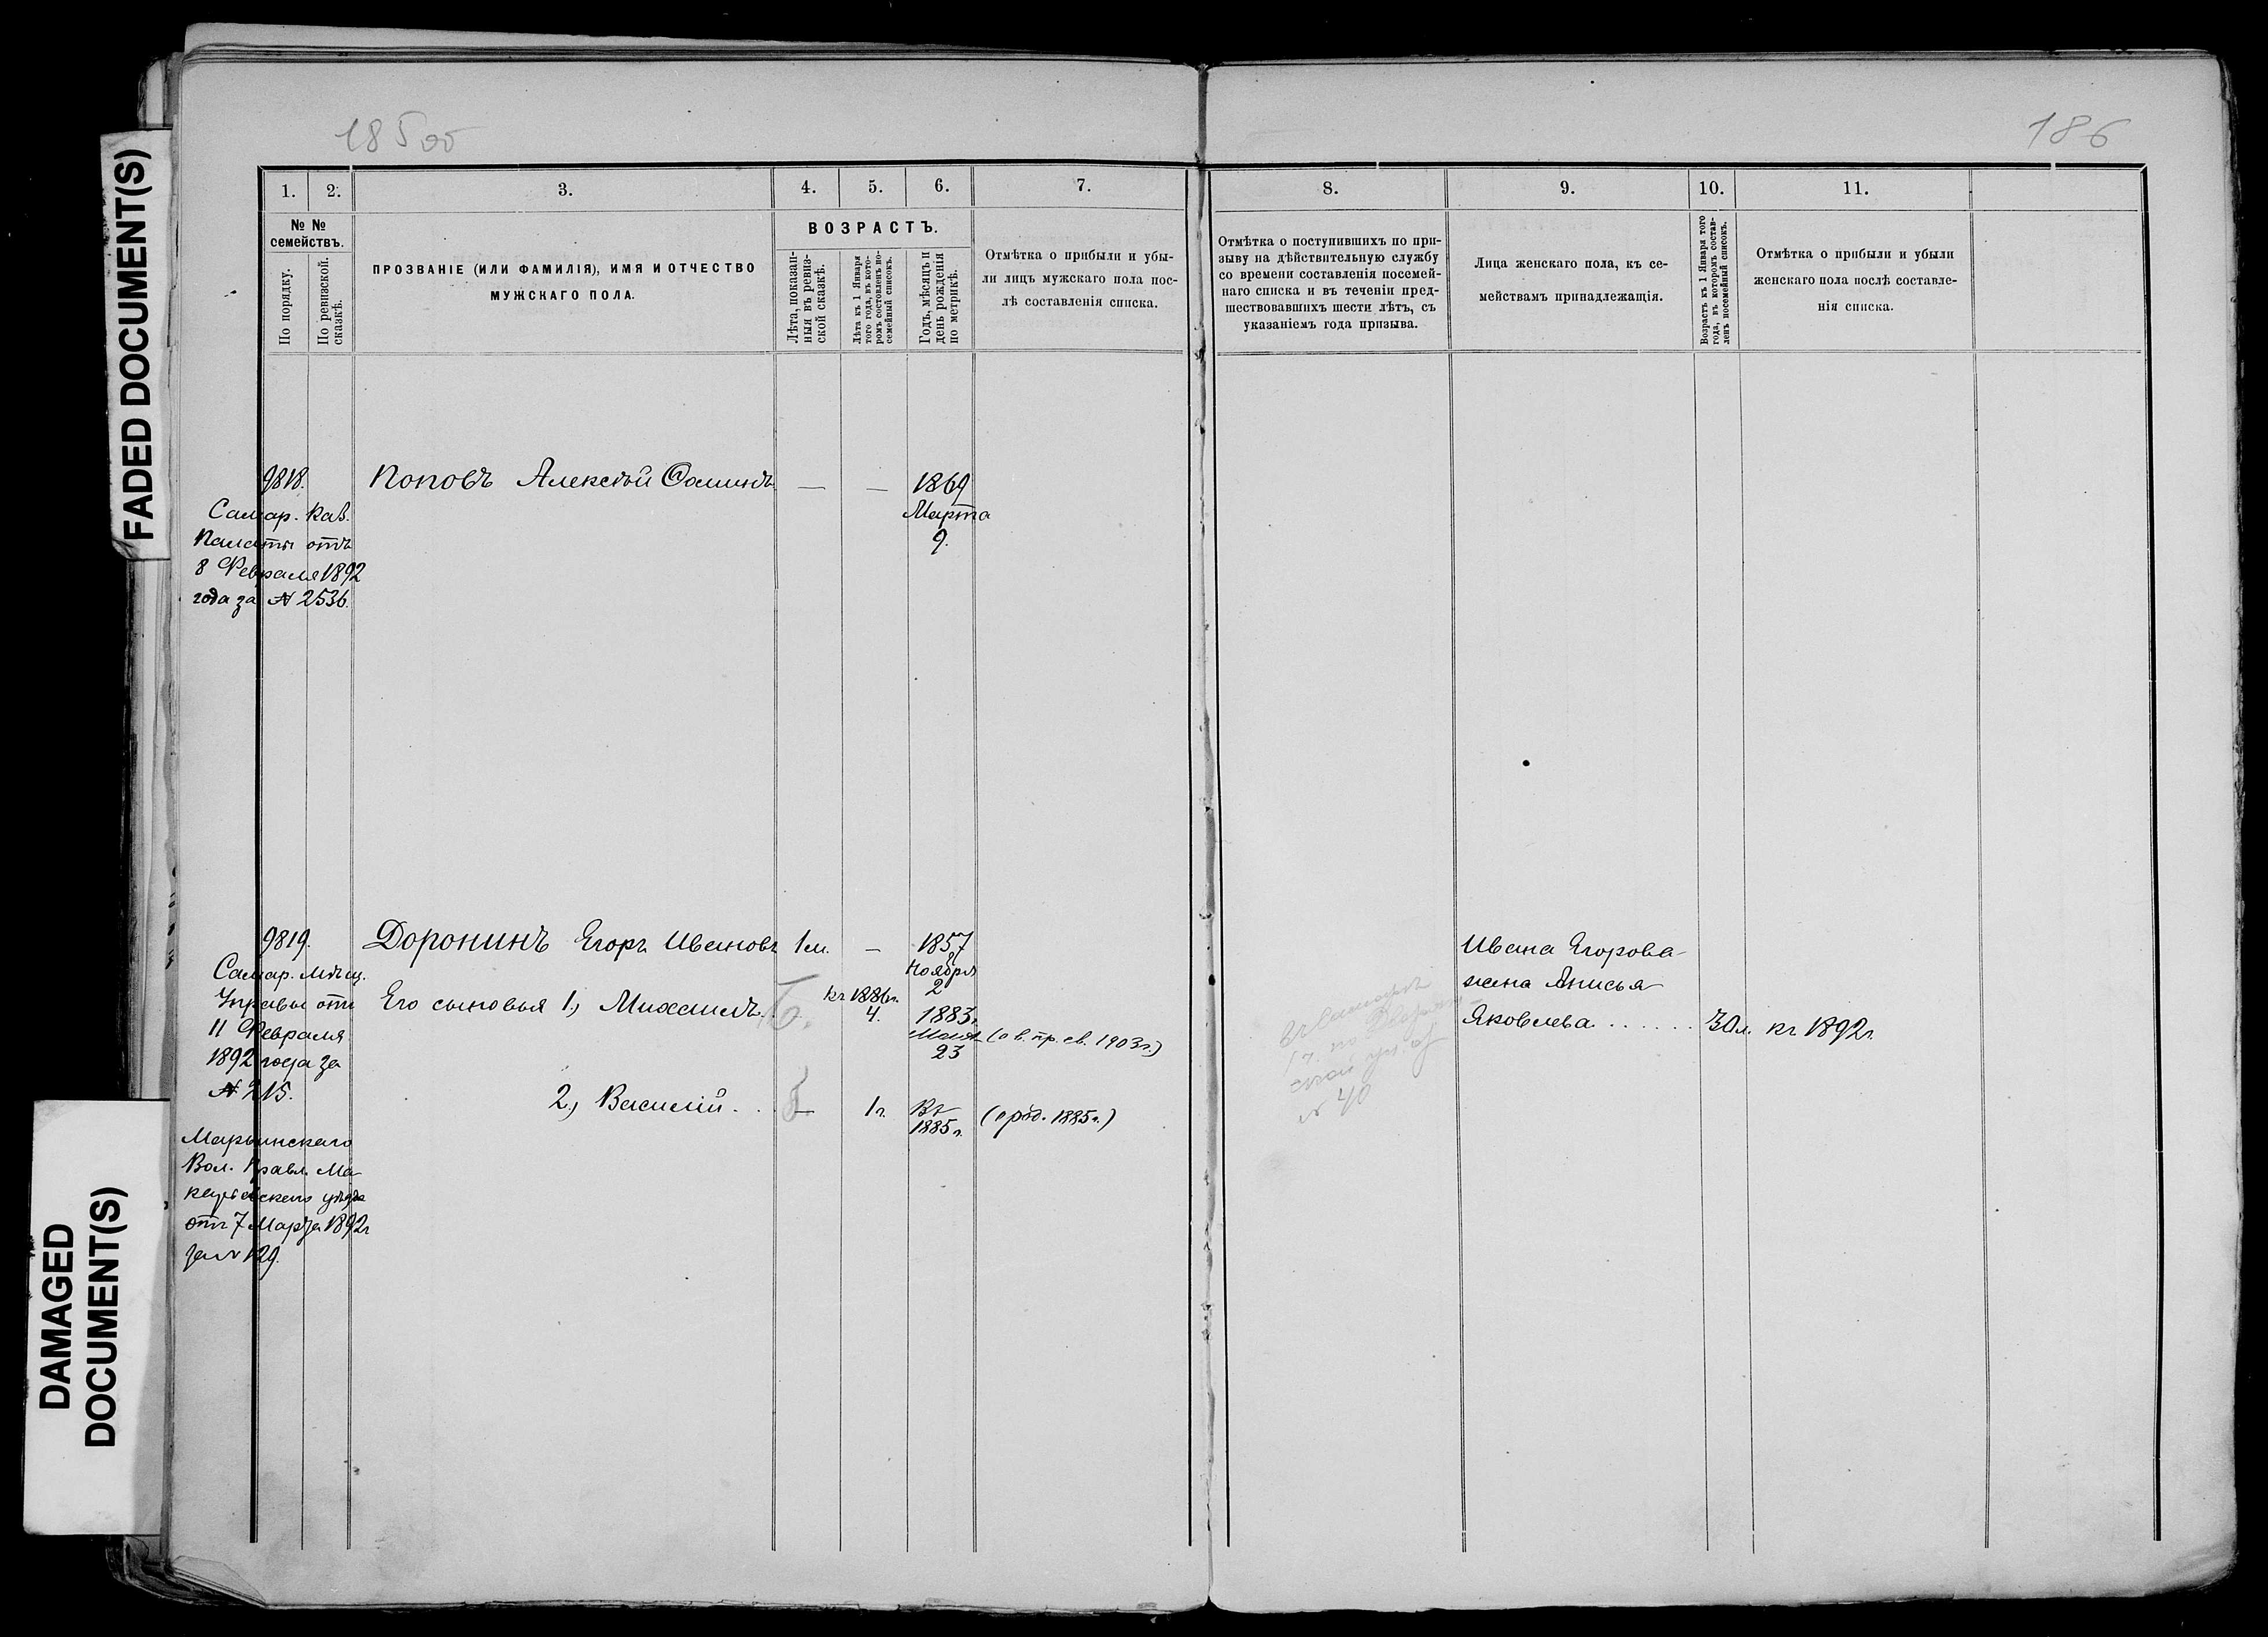 FADED DOCUMENT(S)
DAMAGED
DOCUMENT(S)
185об
186
1.
2.
3.
4.
5.
6.
7.
8.
9.
10.
11.
№ №
семействъ.
По порядку.
По ревизской
сказкѣ.
ПРОЗВАНІЕ (ИЛИ ФАМИЛІЯ), ИМЯ И ОТЧЕСТВО
МУЖСКАГО ПОЛА.
ВОЗРАСТЪ.
Лѣта, показан-
ныя въ ревиз-
ской сказкѣ.
Лѣта къ 1 Января
того года, въ кото-
ромъ составленъ по-
семейный списокъ.
Годъ, мѣсяцъ и
день рожденія
по метрикѣ.
Отмѣтка о прибыли и убы-
ли лицъ мужскаго пола пос-
лѣ составленія списка.
Отмѣтка о поступившихъ по при-
зыву на дѣйствительную службу
со времени составленія посемей-
наго списка и въ теченіи пред-
шествовавшихъ шести лѣтъ, съ
указаніемъ года призыва.
Лица женскаго пола, къ се-
мействамъ принадлежащія.
Возрастъ къ 1 Января того
года, въ которомъ состав-
ленъ посемейный списокъ.
Отмѣтка о прибыли и убыли
женскаго пола послѣ составле-
нія списка.
9818.
Самар. Каз.
Палаты отъ
8 Февраля 1892
года за № 2536.
Поповъ Алексѣй
— — 1869
Марта
9.
9819.
Самар. Мѣщ.
Управы отъ
11 Февраля
1892 года за
№ 215.
Марьинскаго
Вол. Правл. Ма-
карьевскаго уѣзда
отъ 7 Марта 1892г
за № 129.
Доронинъ Егоръ Ивановъ
1м. — 1857
Ноября
2
Его сыновья 1, Михаилъ.
къ 1886г.
4.
1883г.
23
(о в. пр. св. 1903г.)
2, Василій . .
— 1г. Въ
1885г.
(о род. 1885г.)
№ 40
Ивана Егорова
жена Анисья
Яковлева . . . . . . 30л. къ 1892г.